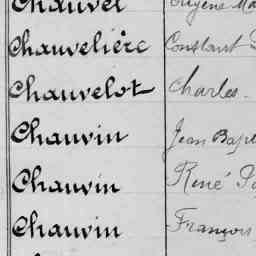 Chauvel Eugène
Chauvelière Constant
Chauvelot Charles.
Chauvin Jean
Chauvin René
Chauvin François